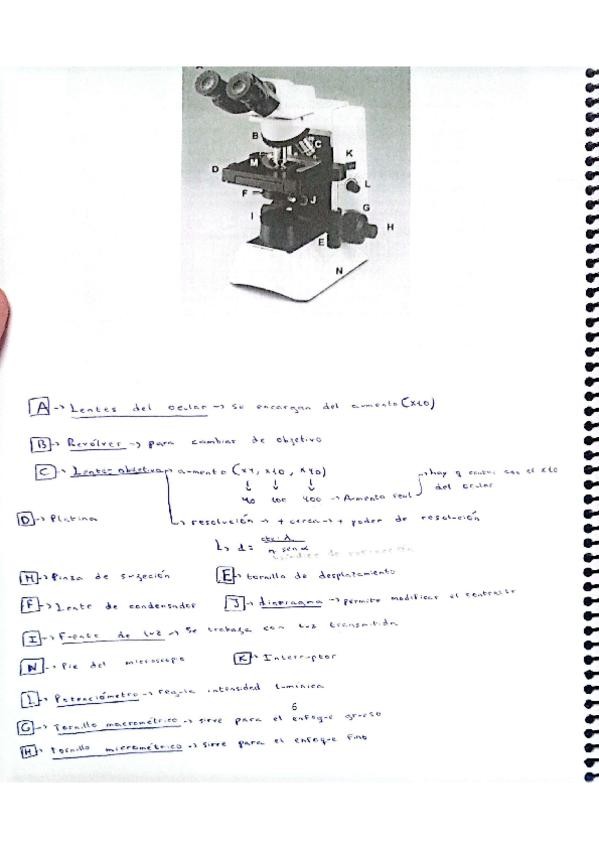 A
B
C
K
D
M
L
F
J
G
I
H
E
N
A -> Lentes del ocular -> Se encargan del aumento (x10)
B -> Revólver -> para cambiar de objetivo
C -> Lentes objetivo -> aumento (x4, x10, x40) -> hay q contar con el x10
40 100 400 -> Aumento real
del ocular
D -> Platina
-> resolución -> + cerca -> + poder de resolución
-> d = cte · λ
n sen α
índice de refracción
M -> Pinza de sujeción
E -> tornillo de desplazamiento
F -> Lente de condensador
J -> diafragma -> permite modificar el contraste
I -> Fuente de luz -> Se trabaja con luz transmitida
N -> Pie del microscopio
K -> Interruptor
L -> Potenciómetro -> regula intensidad lumínica
6
G -> Tornillo macrométrico -> sirve para el enfoque grueso
H -> Tornillo micrométrico -> sirve para el enfoque fino